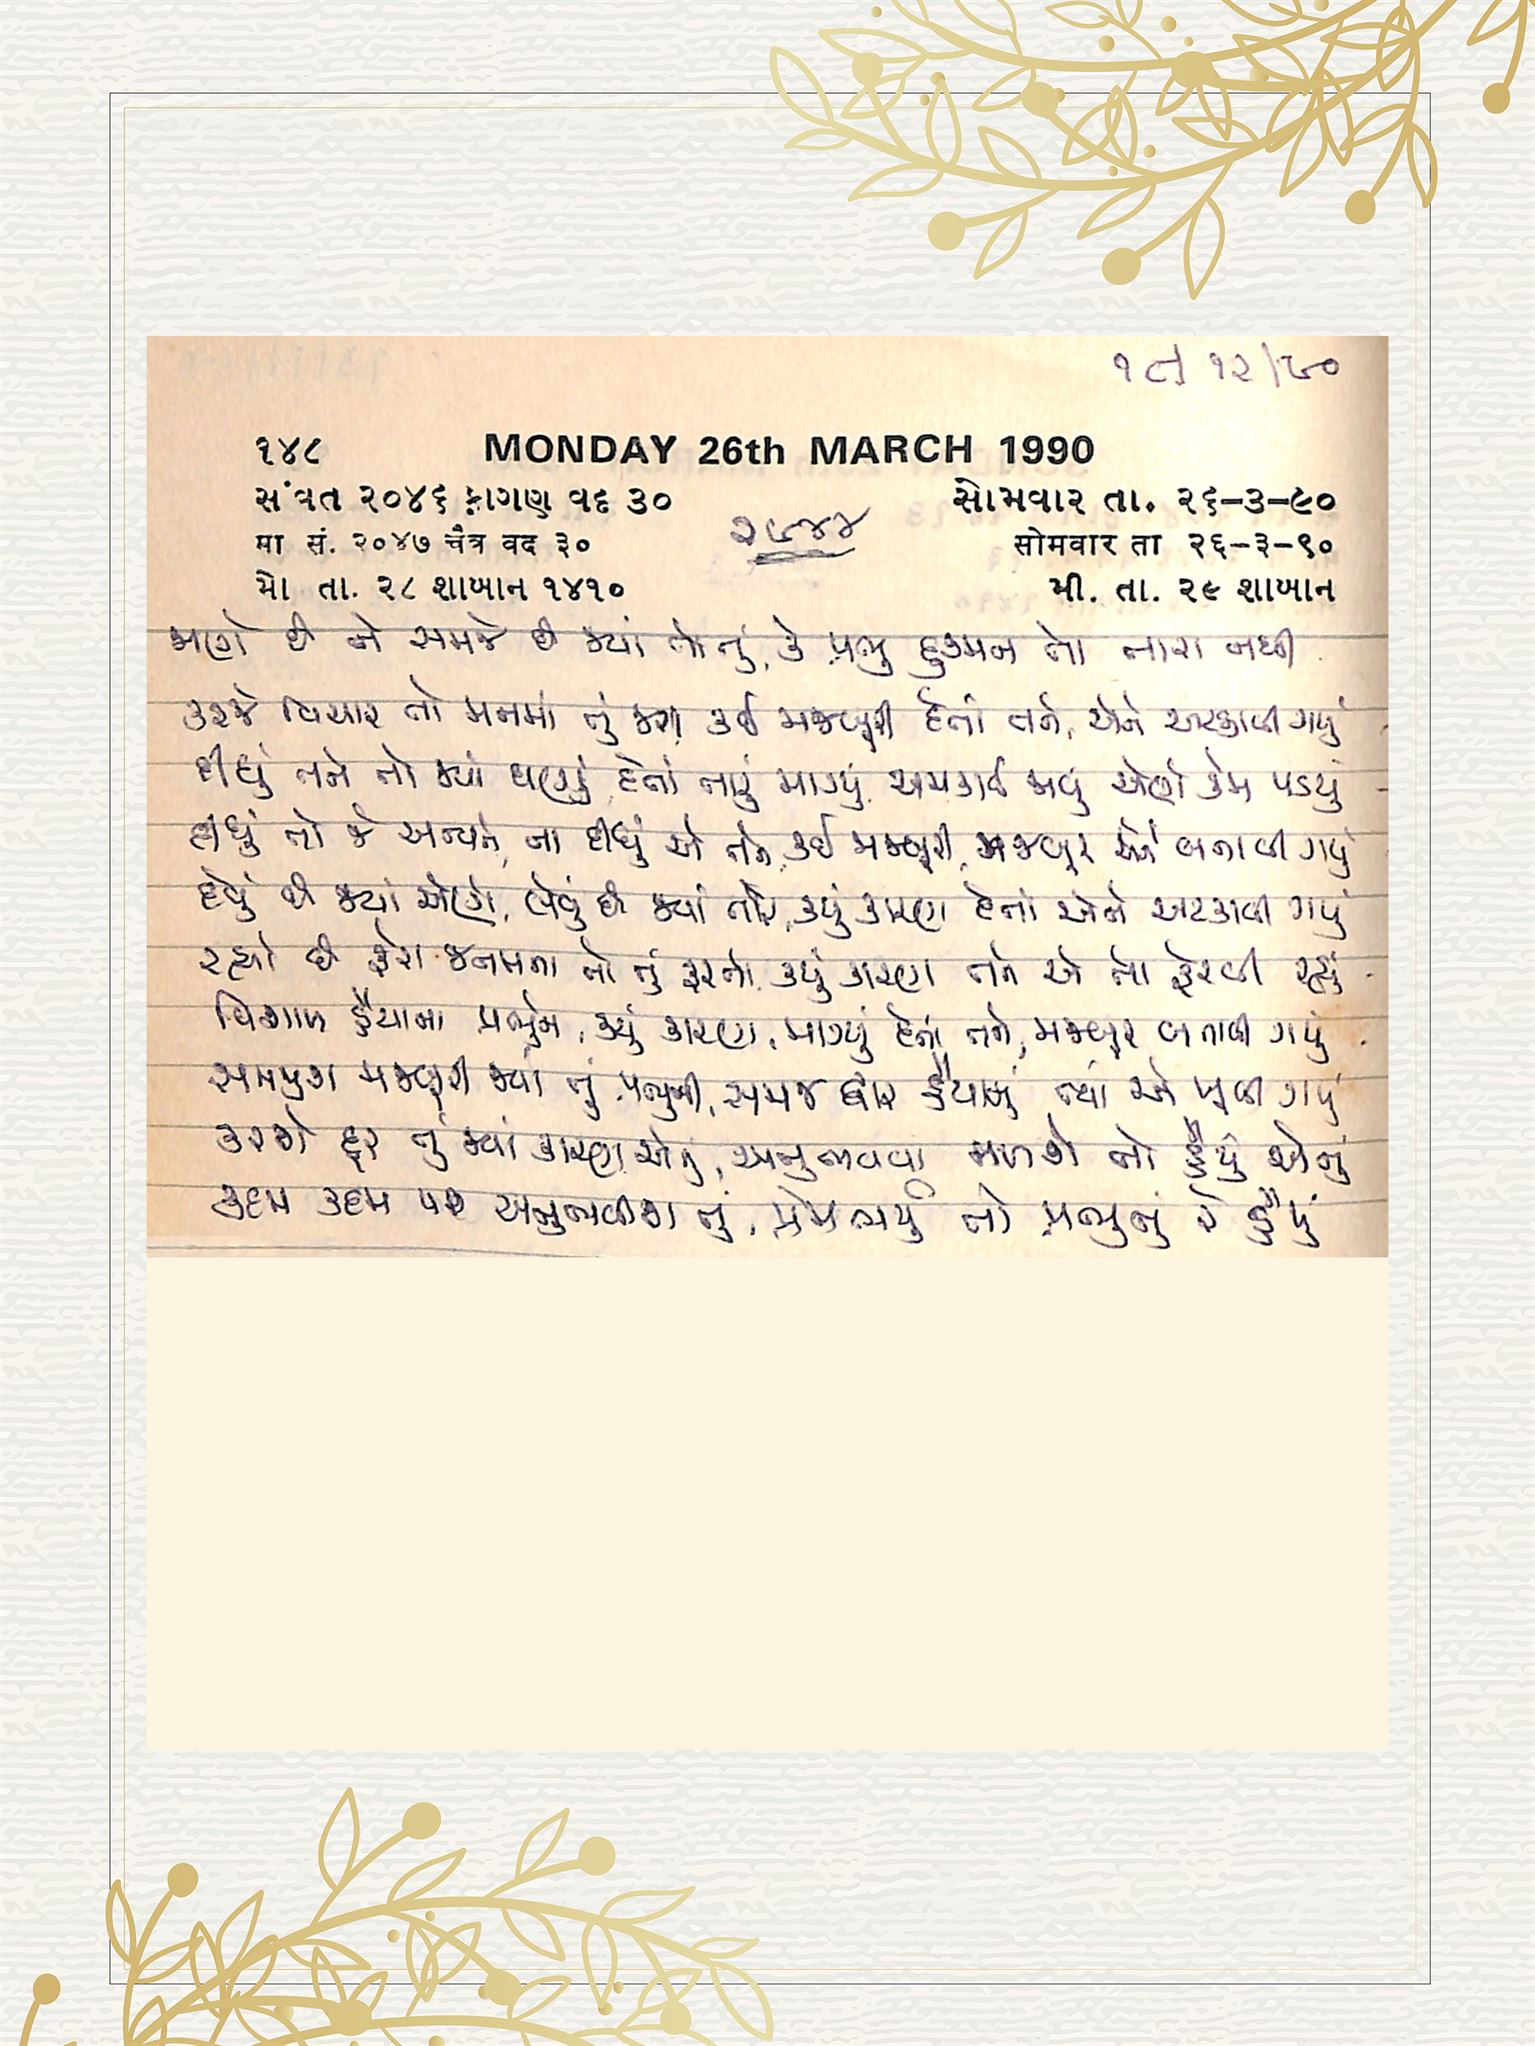 ૧૯ ૧૨/૯૦
૧૪૮ MONDAY 26th MARCH 1990
સંવત ૨૦૪૬ ફાગણ વદ ૩૦ સોમવાર તા. ૨૬-૩-૯૦
૨૯૪૪
मा सं. २०४७ चैत्र वद ३० सोमवार ता २६-३-९०
મો તા. ૨૮ શાબાન ૧૪૧૦ મી. તા. ૨૯ શાબાન
જાણે છે ને સમજે છે ક્યાં તો તું, કે પ્રભુ દુશ્મન તો તારા નથી
કરજે વિચાર તો મનમાં તું જરા કઈ મજબૂરી દેતાં તને, એને અટકાવી ગયું
દીધું તને તો જ્યાં ઘણું, દેતાં તારું માગ્યું અચકાઈ જાવું એણે કેમ પડયું
દીધું તો જે અન્યને, ના દીધું એ તને, કઈ મજબૂરી, મજબૂર એને બનાવી ગયું
દેવું છે જ્યાં એણે, લેવું છે જ્યાં તારે, કયું કારણ દેતાં એને અટકાવી ગયું
રહ્યો છે ફેરા જનમના તો તું ફરતો, કયું કારણ તને એ તો ફેરવી રહ્યું
વિશાળ હૈયાના પ્રભુને, કયું કારણ, માગ્યું દેતાં તને, મજબૂર બનાવી ગયું
સમજીશ મજબૂરી જ્યાં તું પ્રભુની, સમજ દ્વાર હૈયાનું ત્યાં એ ખૂલી ગયું
કરશે દૂર તું જ્યાં કારણ એનું, અનુભવવા મળશે તો હૈયું એનું
કદમ કદમ પર અનુભવીશ તું, પ્રેમભર્યું તો પ્રભુનું રે હૈયું